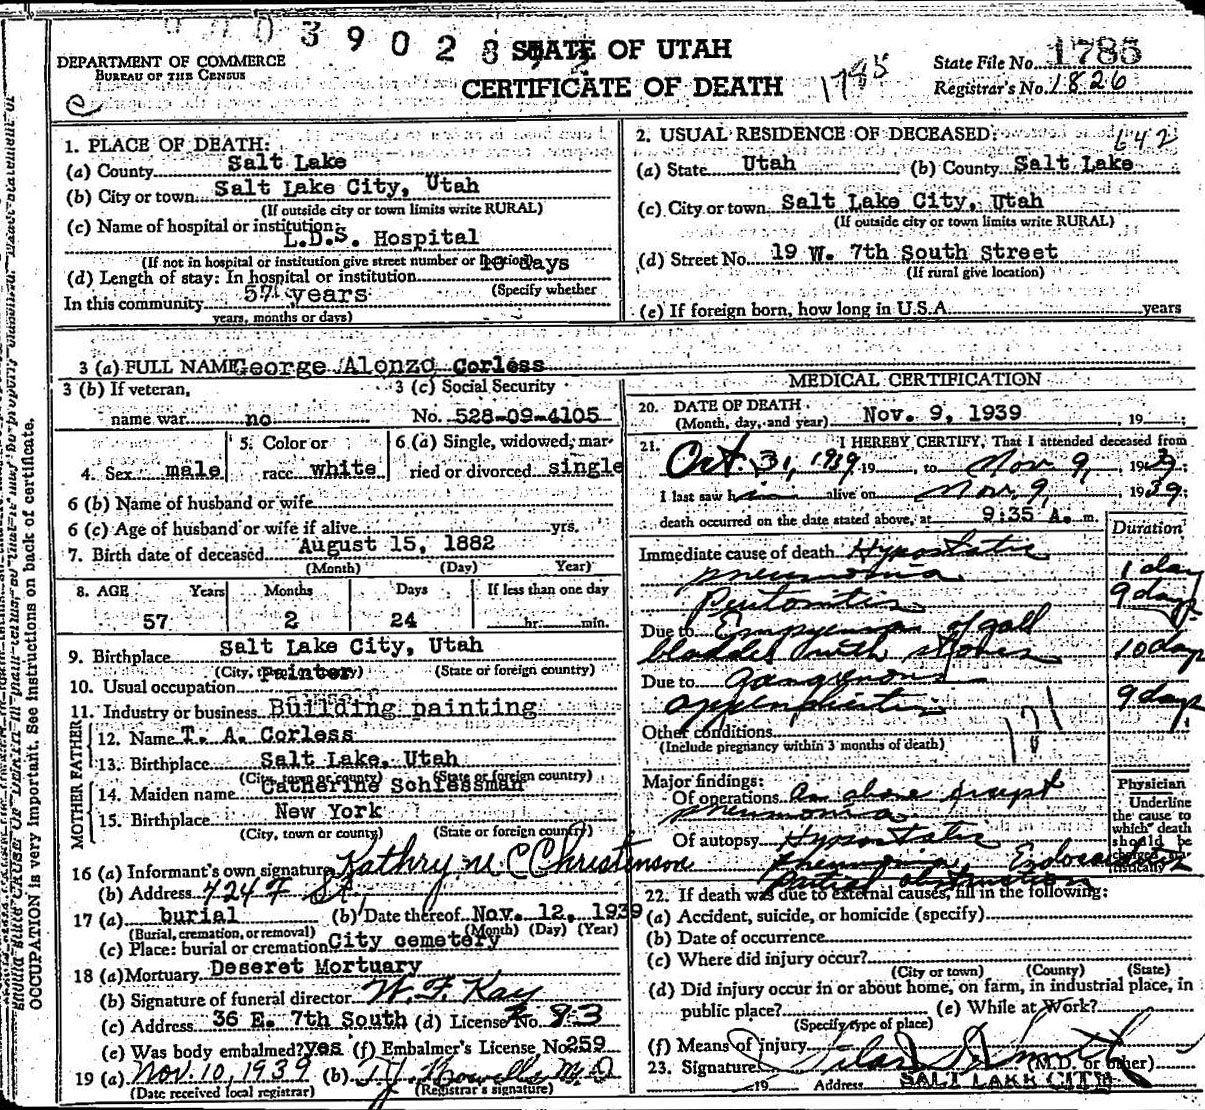 9 9 0 3 9 0 2 8
DEPARTMENT OF COMMERCE
BUREAU OF THE CENSUS
STATE OF UTAH
CERTIFICATE OF DEATH
1785
State File No. 1785
Registrar's No. 1826
642
1. PLACE OF DEATH:
(a) County Salt Lake
(b) City or town Salt Lake City, Utah
(If outside city or town limits write RURAL)
(c) Name of hospital or institution:
L.D.S. Hospital
(If not in hospital or institution give street number or location)
(d) Length of stay: In hospital or institution 10 days
(Specify whether
In this community 57 years
years, months or days)
2. USUAL RESIDENCE OF DECEASED:
(a) State Utah (b) County Salt Lake
(c) City or town Salt Lake City, Utah
(If outside city or town limits write RURAL)
(d) Street No. 19 W. 7th South Street
(If rural give location)
(e) If foreign born, how long in U.S.A. years
3 (a) FULL NAME George Alonzo Corless
3 (b) If veteran,
name war no
3 (c) Social Security
No. 528-09-4105
4. Sex male
5. Color or
race white
6 (a) Single, widowed, mar-
ried or divorced single
6 (b) Name of husband or wife
6 (c) Age of husband or wife if alive yrs.
7. Birth date of deceased August 15, 1882
(Month) (Day) Year)
8. AGE Years Months Days If less than one day
57 2 24 hr. min.
9. Birthplace Salt Lake City, Utah
(City, town or county) (State or foreign country)
10. Usual occupation Painter
11. Industry or business Building painting
FATHER
12. Name T. A. Corless
13. Birthplace Salt Lake, Utah
(City, town or county) (State or foreign country)
MOTHER
14. Maiden name Catherine Schlessman
15. Birthplace New York
(City, town or county) (State or foreign country)
16 (a) Informant's own signature Kathryn C Christenson
(b) Address 424 F St.
17 (a) burial (b) Date thereof Nov. 12, 1939
(Burial, cremation, or removal) (Month) (Day) (Year)
(c) Place: burial or cremation City cemetery
18 (a) Mortuary Deseret Mortuary
(b) Signature of funeral director W. F. Kay
(c) Address 36 E. 7th South (d) License No. 83
(e) Was body embalmed? yes (f) Embalmer's License No. 259
19 (a) Nov. 10, 1939 (b) M.D
(Date received local registrar) (Registrar's signature)
MEDICAL CERTIFICATION
20. DATE OF DEATH
(Month, day, and year) Nov. 9, 1939, 19
21. I HEREBY CERTIFY, That I attended deceased from
Oct. 31, 1939 19, to Nov 9, 1939;
I last saw him alive on Nov. 9, 1939;
death occurred on the date stated above, at 9:35 A. m.
Duration
Immediate cause of death Hypostatic
pneumonia 1 day
Peritonitis 9 days
Due to Empyema of gall
bladder with stones 10 days
Due to Gangrenous
appendicitis 9 days
Other conditions
(Include pregnancy within 3 months of death)
121
Major findings:
Of operations As above except
pneumonia
Of autopsy Hypostatic
Pneumonia, Endocarditis
Partial obstruction
Physician
Underline
the cause to
which death
should be
charged sta-
tistically
22. If death was due to external causes, fill in the following:
(a) Accident, suicide, or homicide (specify)
(b) Date of occurrence
(c) Where did injury occur?
(City or town) (County) (State)
(d) Did injury occur in or about home, on farm, in industrial place, in
public place? (e) While at Work?
(Specify type of place)
(f) Means of injury
23. Signature Silas S. Smith (M.D. or other)
19 Address SALT LAKE CITY
OCCUPATION is very important. See instructions on back of certificate.